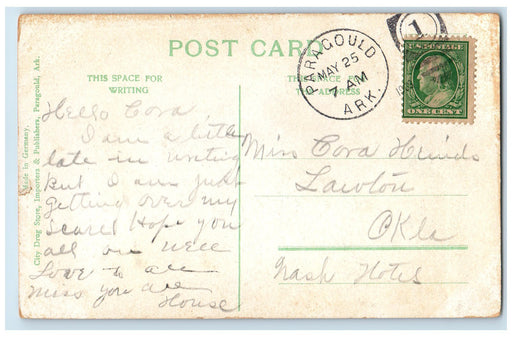 POST CARD
THIS SPACE FOR
WRITING
THIS SPACE FOR
THE ADDRESS
PARAGOULD
MAY 25
7 AM
ARK.
1
U.S. POSTAGE
ONE CENT
Made in Germany.
City Drug Store, Importers & Publishers, Paragould, Ark.
Hello Cora
I am a little
late in writing
but I am just
getting over my
scare! Hope you
all are well
Love to all
miss you all
House
Miss Cora Hinds
Lawton
Okla
Nash Hotel